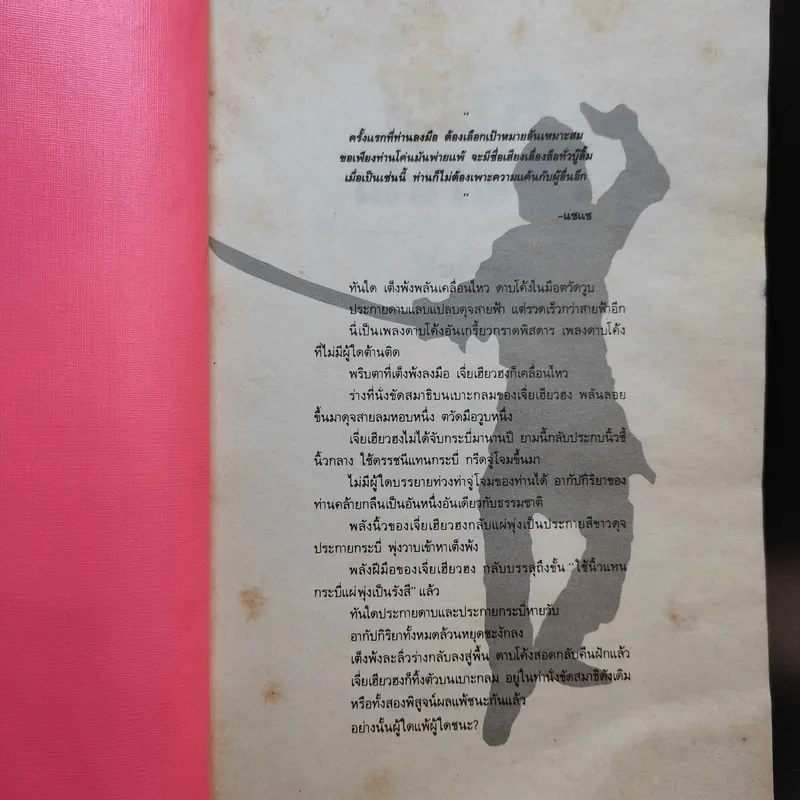 "
ครั้งแรกที่ท่านลงมือ ต้องเลือกเป้าหมายอันเหมาะสม
ขอเพียงท่านโค่นมันพ่ายแพ้ จะมีชื่อเสียงเลื่องลือทั่วบู๊ลิ้ม
เมื่อเป็นเช่นนี้ ท่านก็ไม่ต้องเพาะความแค้นกับผู้อื่นอีก
"
-แซแซ
ทันใด เต็งพ้งพลันเคลื่อนไหว ดาบโค้งในมือตวัดวูบ
ประกายดาบแลบแปลบดุจสายฟ้า แต่รวดเร็วกว่าสายฟ้าอีก
นี่เป็นเพลงดาบโค้งอันเกรี้ยวกราดพิสดาร เพลงดาบโค้ง
ที่ไม่มีผู้ใดต้านติด
พริบตาที่เต็งพ้งลงมือ เจี่ยเฮียวฮงก็เคลื่อนไหว
ร่างที่นั่งขัดสมาธิบนเบาะกลมของเจี่ยเฮียวฮง พลันลอย
ขึ้นมาดุจสายลมหอบหนึ่ง ตวัดมือวูบหนึ่ง
เจี่ยเฮียวฮงไม่ได้จับกระบี่มานานปี ยามนี้กลับประกบนิ้วชี้
นิ้วกลาง ใช้ดรรชนีแทนกระบี่ กรีดจู่โจมขึ้นมา
ไม่มีผู้ใดบรรยายท่วงท่าจู่โจมของท่านได้ อากัปกิริยาของ
ท่านคล้ายกลืนเป็นอันหนึ่งอันเดียวกับธรรมชาติ
พลังนิ้วของเจี่ยเฮียวฮงกลับแผ่พุ่งเป็นประกายสีขาวดุจ
ประกายกระบี่ พุ่งวาบเข้าหาเต็งพ้ง
พลังฝีมือของเจี่ยเฮียวฮง กลับบรรลุถึงขั้น "ใช้นิ้วแทน
กระบี่แผ่พุ่งเป็นรังสี" แล้ว
ทันใดประกายดาบและประกายกระบี่หายวับ
อากัปกิริยาทั้งหมดล้วนหยุดชะงักลง
เต็งพ้งละลิ่วร่างกลับลงสู่พื้น ดาบโค้งสอดกลับคืนฝักแล้ว
เจี่ยเฮียวฮงก็ทิ้งตัวบนเบาะกลม อยู่ในท่านั่งขัดสมาธิดังเดิม
หรือทั้งสองพิสูจน์ผลแพ้ชนะกันแล้ว
อย่างนั้นผู้ใดแพ้ผู้ใดชนะ?